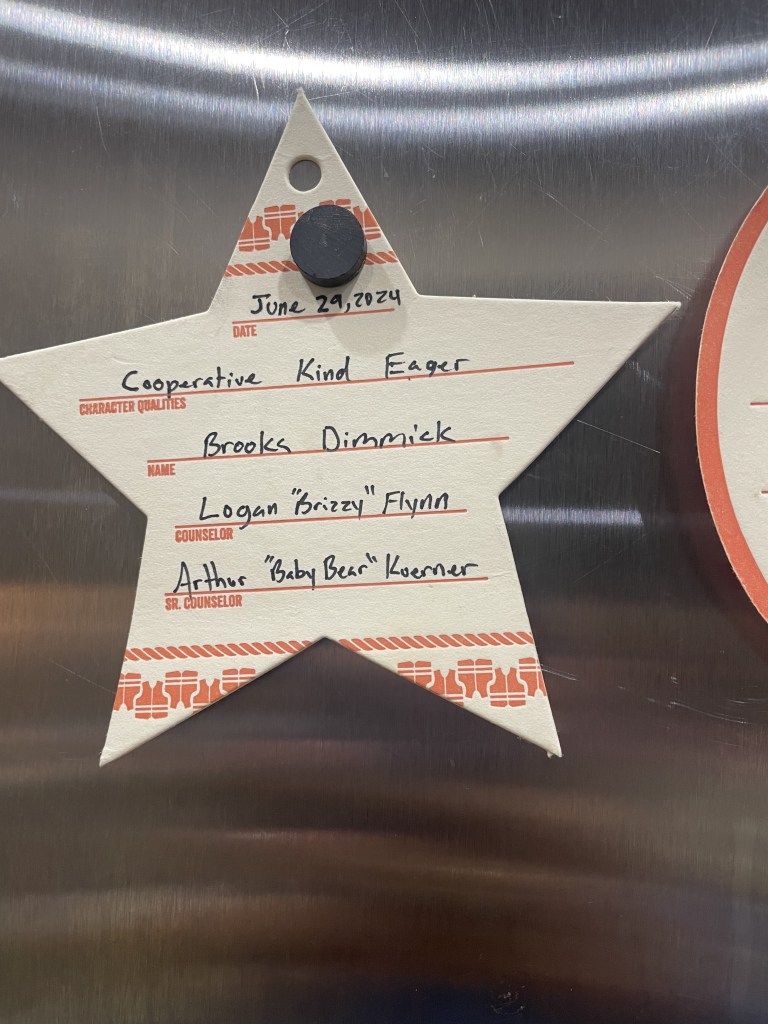 June 29, 2024
DATE
Cooperative Kind Eager
CHARACTER QUALITIES
Brooks Dimmick
NAME
Logan "Brizzy" Flynn
COUNSELOR
Arthur "Baby Bear" Kuerner
SR. COUNSELOR